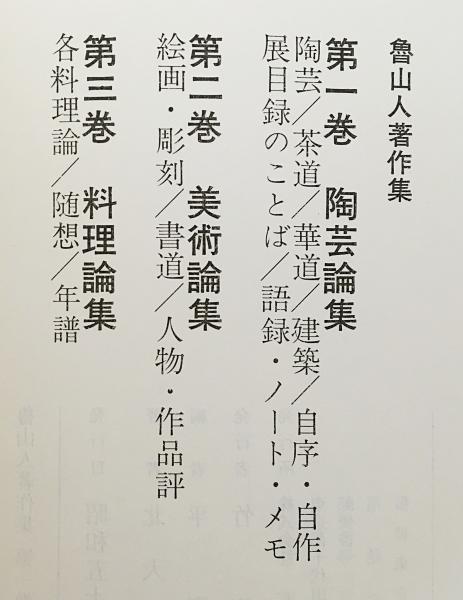 魯山人著作集
第一巻 陶芸論集
陶芸/茶道/華道/建築/自序・自作
展目録のことば/語録・ノート・メモ
第二巻 美術論集
絵画・彫刻/書道/人物・作品評
第三巻 料理論集
各料理論/随想/年譜